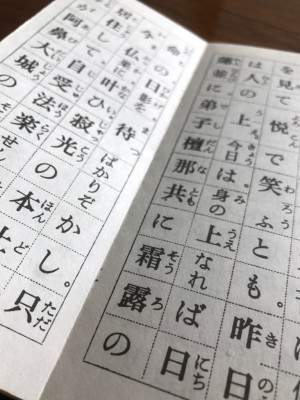 を見て悦で笑ふとも。昨日
は人の上、今日は身の上なれば日
蓮並に弟子檀那共に霜露の
命の日影を待ばかりぞかし。只
今仏果に叶ひ寂光の本土
居住して自受法楽せん
阿鼻大城の